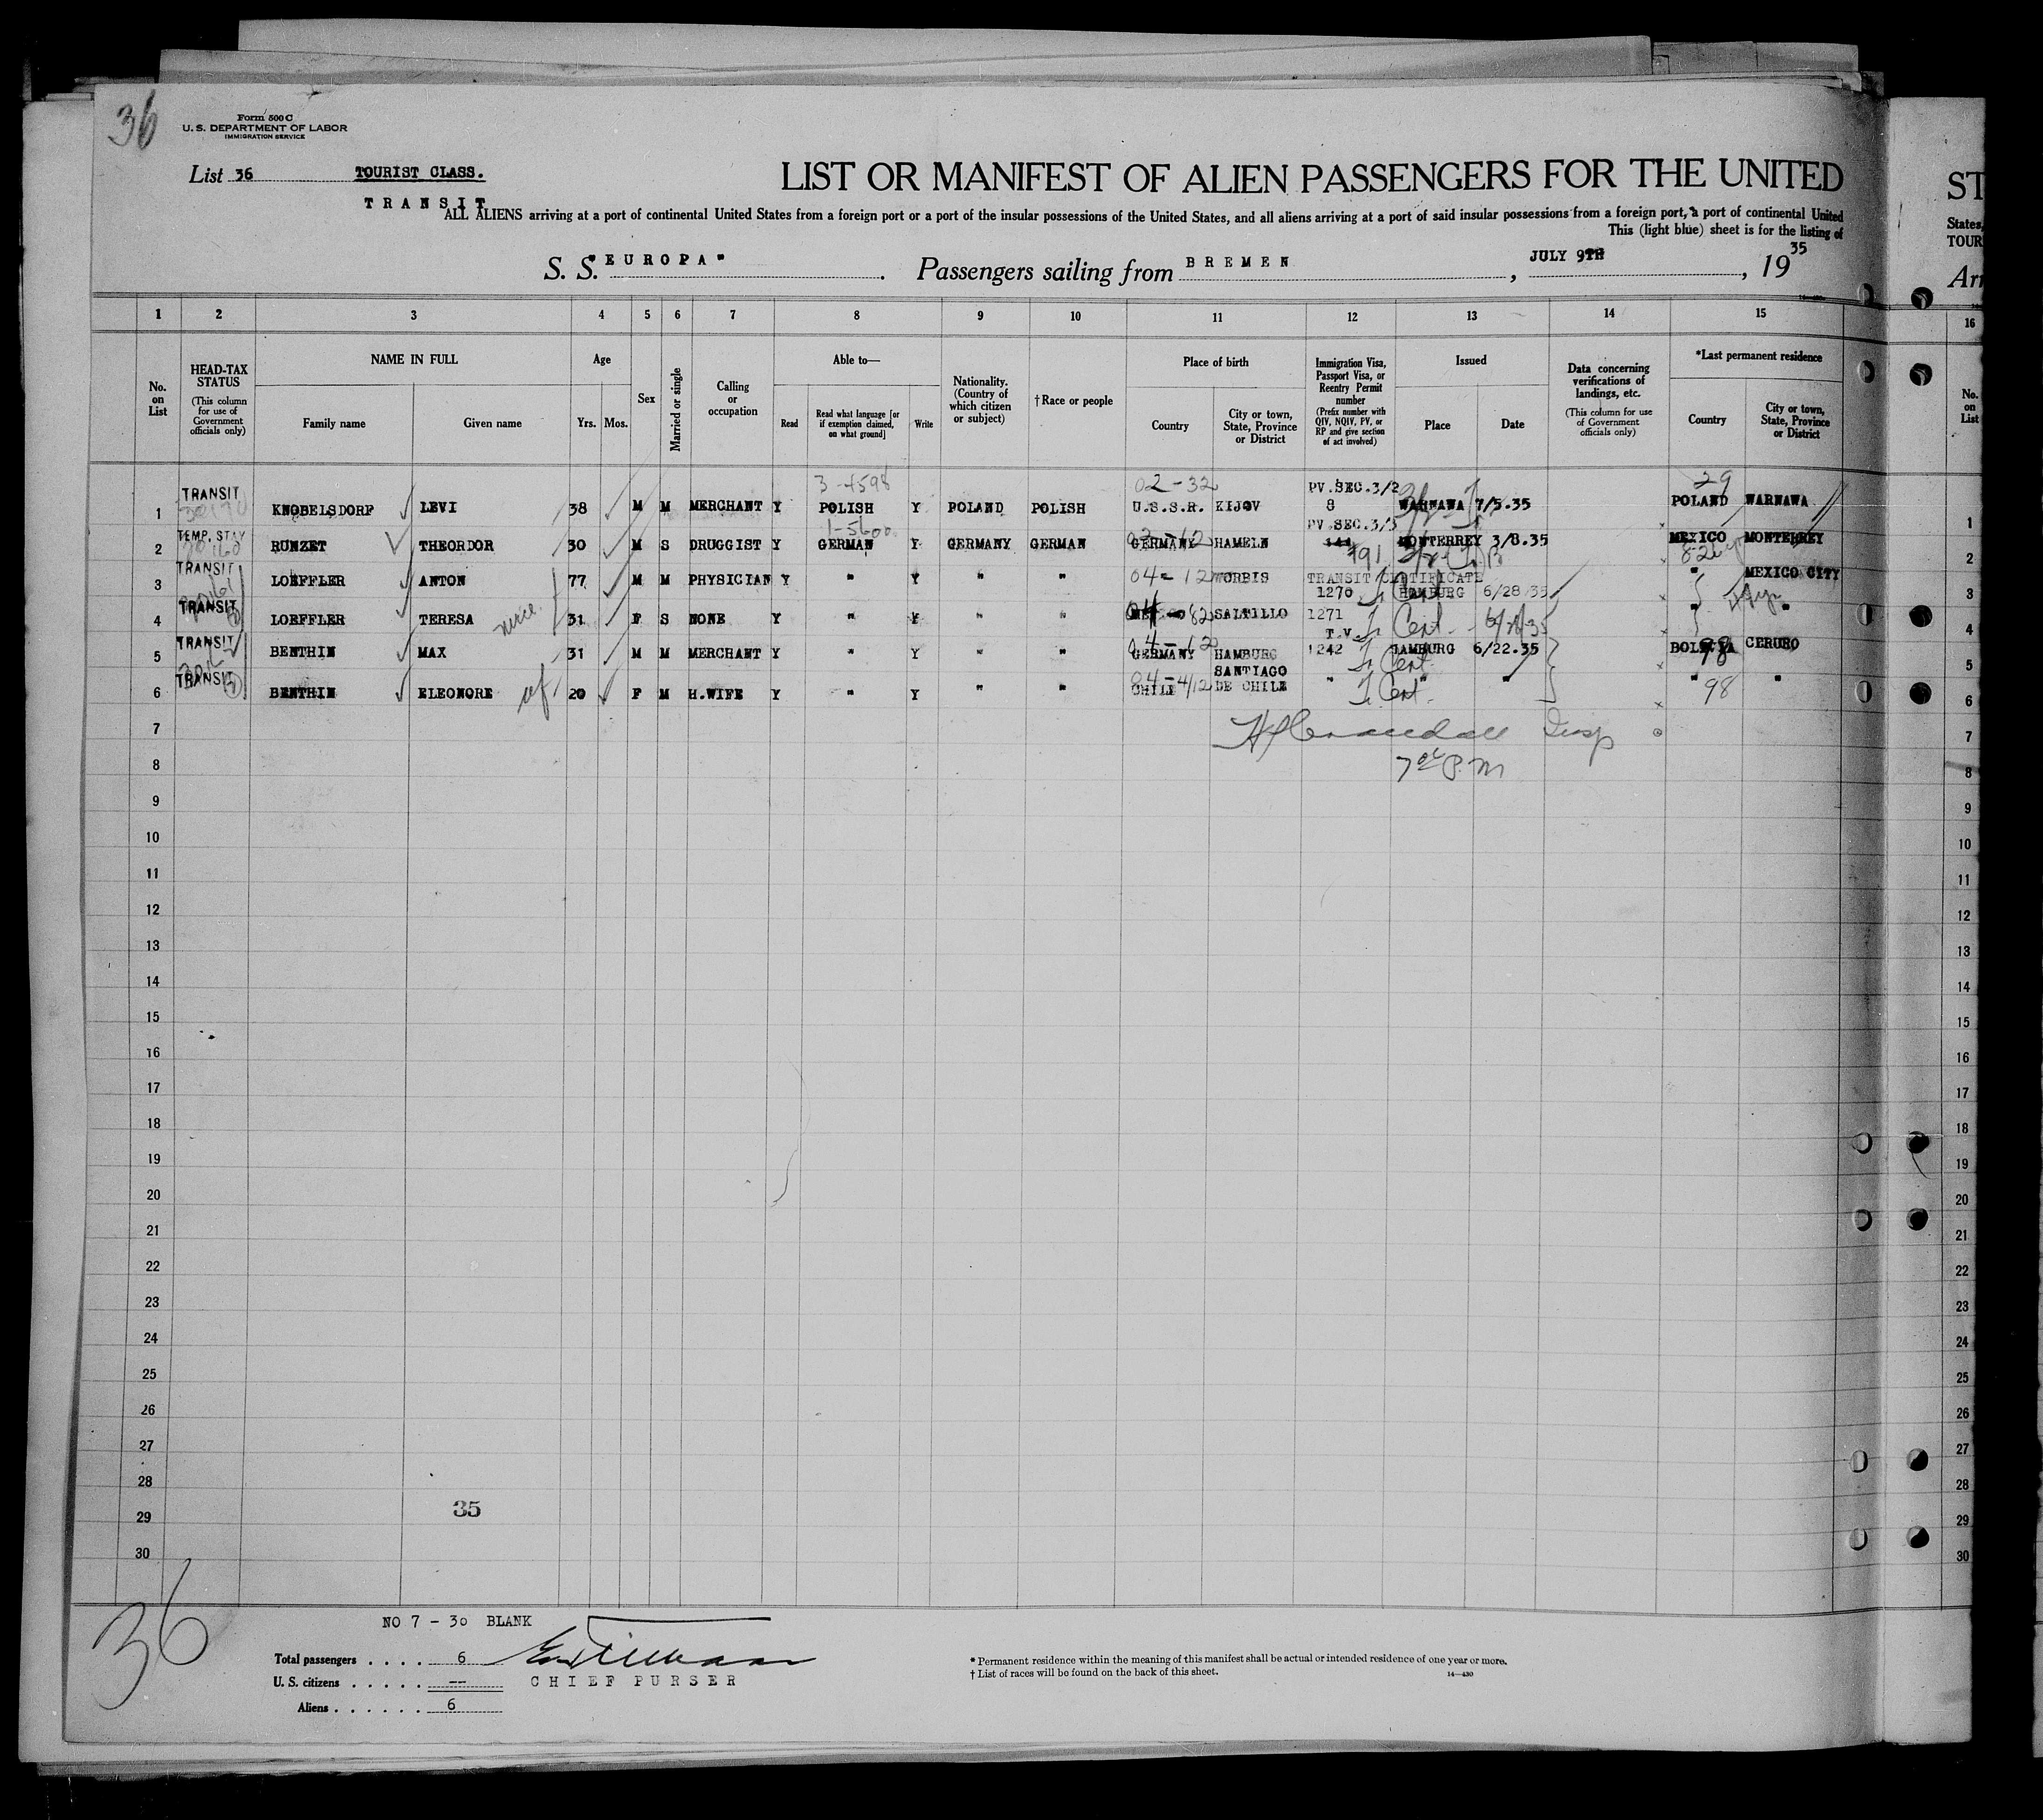 36
Form 500 C
U. S. DEPARTMENT OF LABOR
IMMIGRATION SERVICE
List 36 TOURIST CLASS.
TRANSIT
LIST OR MANIFEST OF ALIEN PASSENGERS FOR THE UNITED
ST
ALL ALIENS arriving at a port of continental United States from a foreign port or a port of the insular possessions of the United States, and all aliens arriving at a port of said insular possessions from a foreign port, a port of continental United
States,
This (light blue) sheet is for the listing of
TOUR
S. S. "EUROPA" . Passengers sailing from BREMEN , JULY 9TH , 1935
Arr
1 2 3 4 5 6 7 8 9 10 11 12 13 14 15
16
No. on List
HEAD-TAX STATUS
(This column for use of Government officials only)
NAME IN FULL
Family name
Given name
Age
Yrs. Mos.
Sex
Married or single
Calling or occupation
Able to—
Read
Read what language [or if exemption claimed, on what ground]
Write
Nationality. (Country of which citizen or subject)
†Race or people
Place of birth
Country
City or town, State, Province or District
Immigration Visa, Passport Visa, or Reentry Permit number
(Prefix number with QIV, NQIV, PV, or RP and give section of act involved)
Issued
Place
Date
Data concerning verifications of landings, etc.
(This column for use of Government officials only)
*Last permanent residence
Country
City or town, State, Province or District
No. on List
3-4598 02-32 PV.SEC.3/2 29
1 TRANSIT KNOBELSDORF LEVI 38 M M MERCHANT Y POLISH Y POLAND POLISH U.S.S.R. KIJOV 8 WARNAWA 7/5.35 POLAND WARNAWA 1
1-5600 PV.SEC.3/3
2 TEMP. STAY RUNZET THEORDOR 30 M S DRUGGIST Y GERMAN Y GERMANY GERMAN GERMANY HAMELN MONTERREY 3/8.35 MEXICO MONTERREY 2
791
3 TRANSIT LOEFFLER ANTON 77 M M PHYSICIAN Y " Y " " 04-12 WORBIS TRANSIT CERTIFICATE 1270 HAMBURG 6/28/35 " MEXICO CITY 3
4 TRANSIT LOEFFLER TERESA niece 31 F S NONE Y " Y " " SALTILLO 1271 Tr Cert. " " 4
5 TRANSIT BENTHIN MAX 31 M M MERCHANT Y " Y " " GERMANY HAMBURG T.V. 1242 HAMBURG 6/22.35 Tr Cert. BOLIVIA 98 CERURO 5
6 TRANSIT BENTHIN ELEONORE 20 F M H.WIFE Y " Y " " CHILE SANTIAGO DE CHILE " Tr Cert. " " 98 " 6
7 Insp 7
8 P.M 8
9 9
10 10
11 11
12 12
13 13
14 14
15 15
16 16
17 17
18 18
19 19
20 20
21 21
22 22
23 23
24 24
25 25
26 26
27 27
28 28
29 35 29
30 30
36
NO 7 - 30 BLANK
Total passengers . . . . 6
U. S. citizens . . . . . --
CHIEF PURSER
Aliens . . . . . . 6
* Permanent residence within the meaning of this manifest shall be actual or intended residence of one year or more.
† List of races will be found on the back of this sheet.
14—430